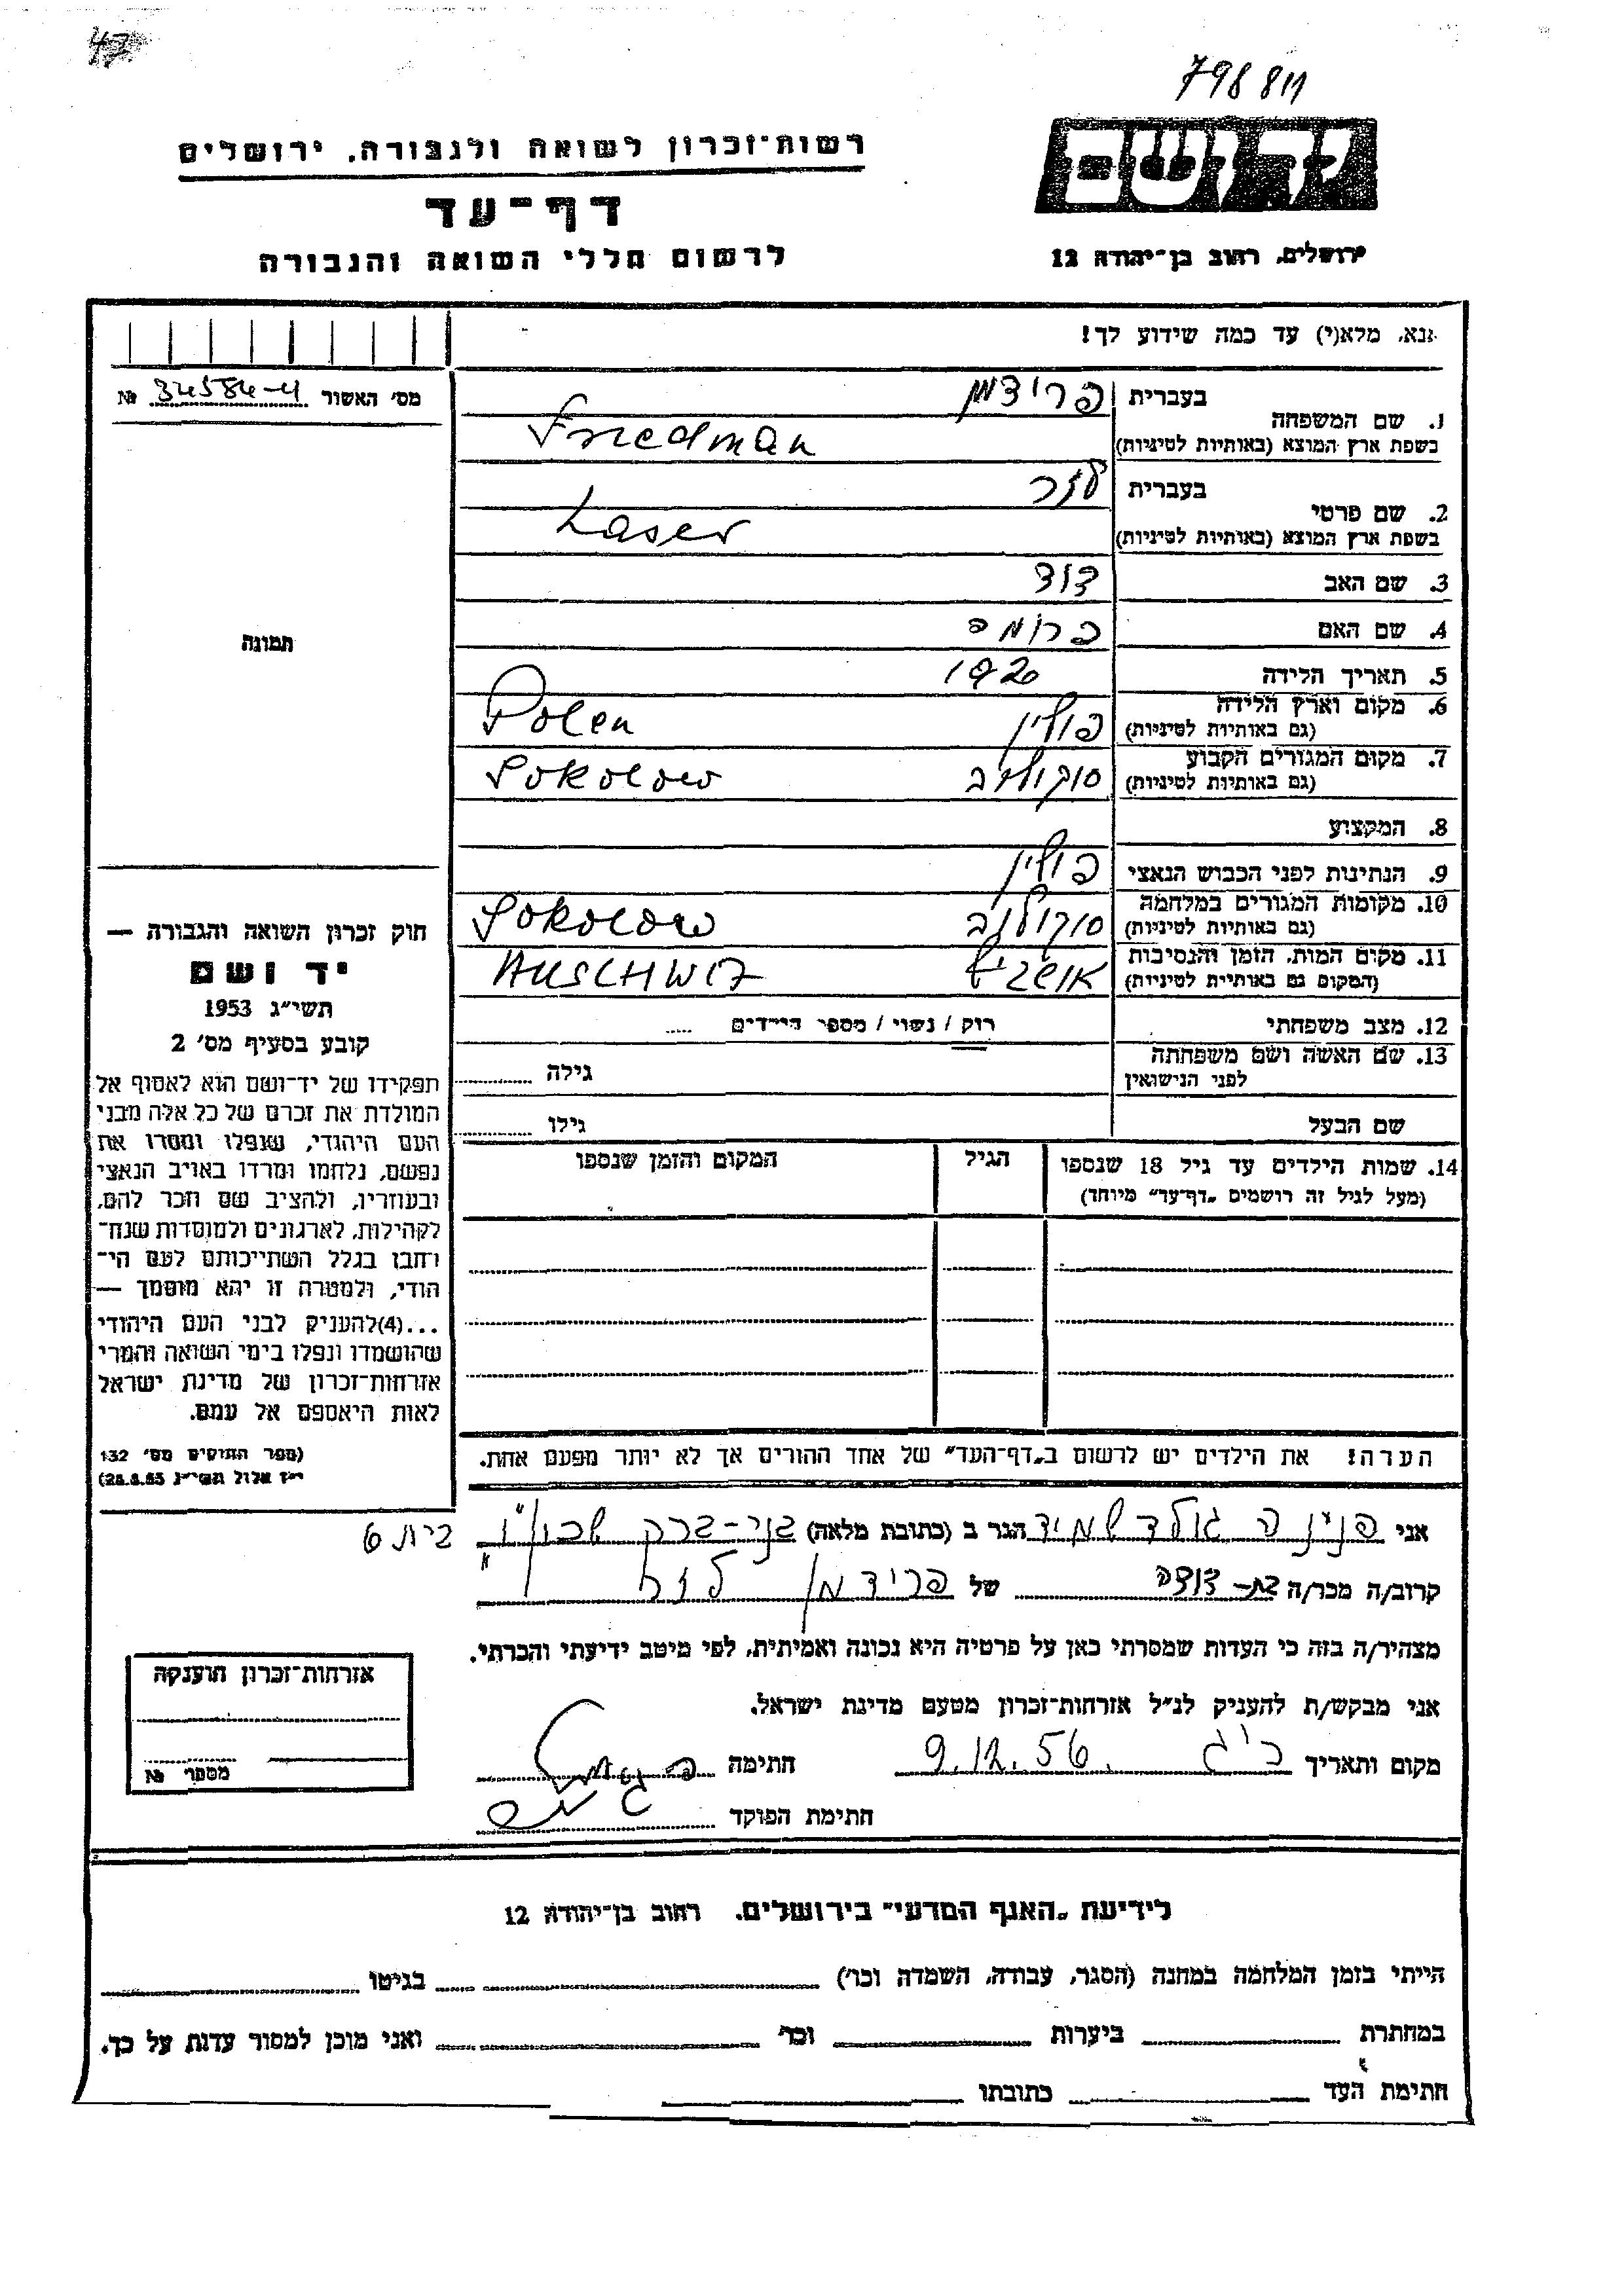 47
798811
יד ושם
רשות־זכרון לשואה ולגבורה, ירושלים
דף־עד
ירושלים, רחוב בן־יהודה 12
לרשום חללי השואה והגבורה
נא, מלא(י) עד כמה שידוע לך!
מס׳ האשור 34584-4 №
1. שם המשפחה בעברית פרידמן
בשפת ארץ המוצא (באותיות לטיניות) Friedman
2. שם פרטי בעברית לזר
בשפת ארץ המוצא (באותיות לטיניות) Laser
3. שם האב דוד
4. שם האם פרומה
5. תאריך הלידה 1920
6. מקום וארץ הלידה פולין Polen
(גם באותיות לטיניות)
7. מקום המגורים הקבוע סוקולוב Sokolow
(גם באותיות לטיניות)
8. המקצוע
9. הנתינות לפני הכבוש הנאצי פולין
10. מקומות המגורים במלחמה סוקולוב Sokolow
(גם באותיות לטיניות)
11. מקום המות, הזמן והנסיבות אושביץ AUSCHWIZ
(המקום גם באותיות לטיניות)
12. מצב משפחתי רוק / נשוי / מספר הילדים .....
13. שם האשה ושם משפחתה גילה
לפני הנישואין
שם הבעל גילו
14. שמות הילדים עד גיל 18 שנספו הגיל המקום והזמן שנספו
(מעל לגיל זה רושמים „דף־עד״ מיוחד)
הערה! את הילדים יש לרשום ב„דף־העד״ של אחד ההורים אך לא יותר מפעם אחת.
תמונה
חוק זכרון השואה והגבורה —
יד ושם
תשי״ג 1953
קובע בסעיף מס׳ 2
תפקידו של יד־ושם הוא לאסוף אל
המולדת את זכרם של כל אלה מבני
העם היהודי, שנפלו ומסרו את
נפשם, נלחמו ומרדו באויב הנאצי
ובעוזריו, ולהציב שם וזכר להם,
לקהילות, לארגונים ולמוסדות שנח־
רחבו בגלל השתייכותם לעם הי־
הודי, ולמטרה זו יהא מוסמך —
...(4)להעניק לבני העם היהודי
שהושמדו ונפלו בימי השואה והמרי
אזרחות־זכרון של מדינת ישראל
לאות היאספם אל עמם.
(ספר החוקים מס׳ 132
י״ז אלול תשי״ג 28.8.55)
אני פנינה גולדשמיד הגר ב (כתובת מלאה) בני-ברק שכון ו׳ בית 6
קרוב/ה מכר/ה בת-דודה של פרידמן לזר
מצהיר/ה בזה כי העדות שמסרתי כאן על פרטיה היא נכונה ואמיתית, לפי מיטב ידיעתי והכרתי.
אני מבקש/ת להעניק לנ״ל אזרחות־זכרון מטעם מדינת ישראל.
מקום ותאריך 9.12.56 חתימה
חתימת הפוקד
אזרחות־זכרון הוענקה
מספר №
לידיעת „האגף המדעי״ בירושלים. רחוב בן־יהודה 12
הייתי בזמן המלחמה במחנה (הסגר, עבודה, השמדה וכר׳) בגיטו
במחתרת ביערות וכר׳ ואני מוכן למסור עדות על כך.
חתימת העד כתובתו